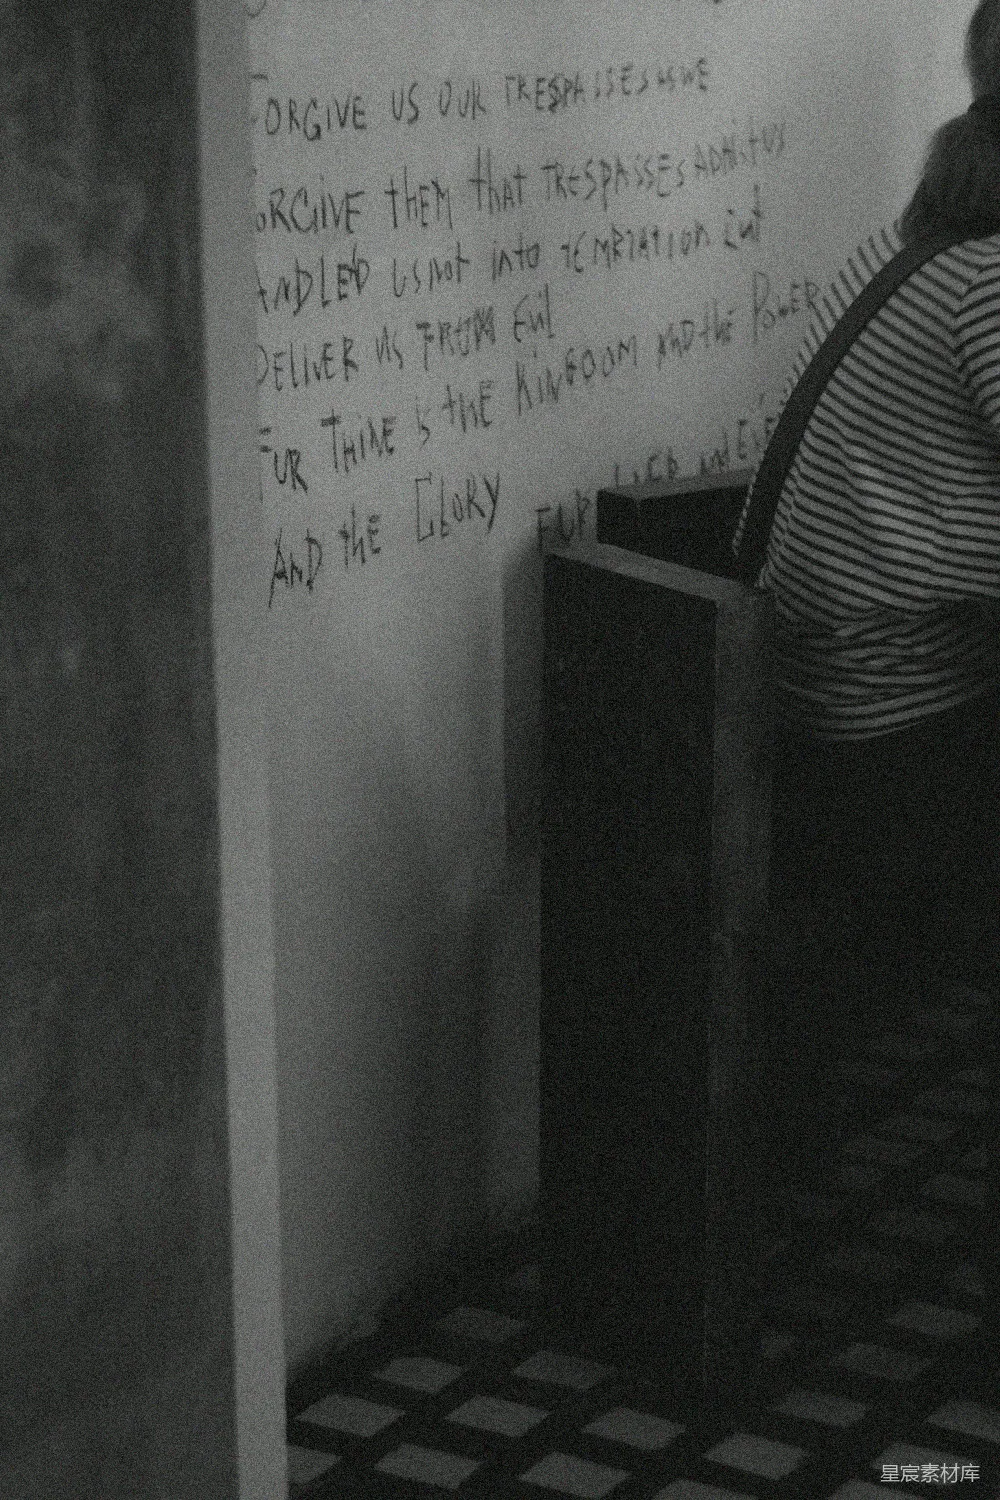 FORGIVE US OUR TRESPASSES AS WE
FORGIVE thEM that TRESPASSES ADNistUS
ANDLED US not into TEMPTATION
DELIVER US FROM Evil
FUR THINE is the KINGDOM AND the POWER
AND the GLORY FUR
星宸素材库